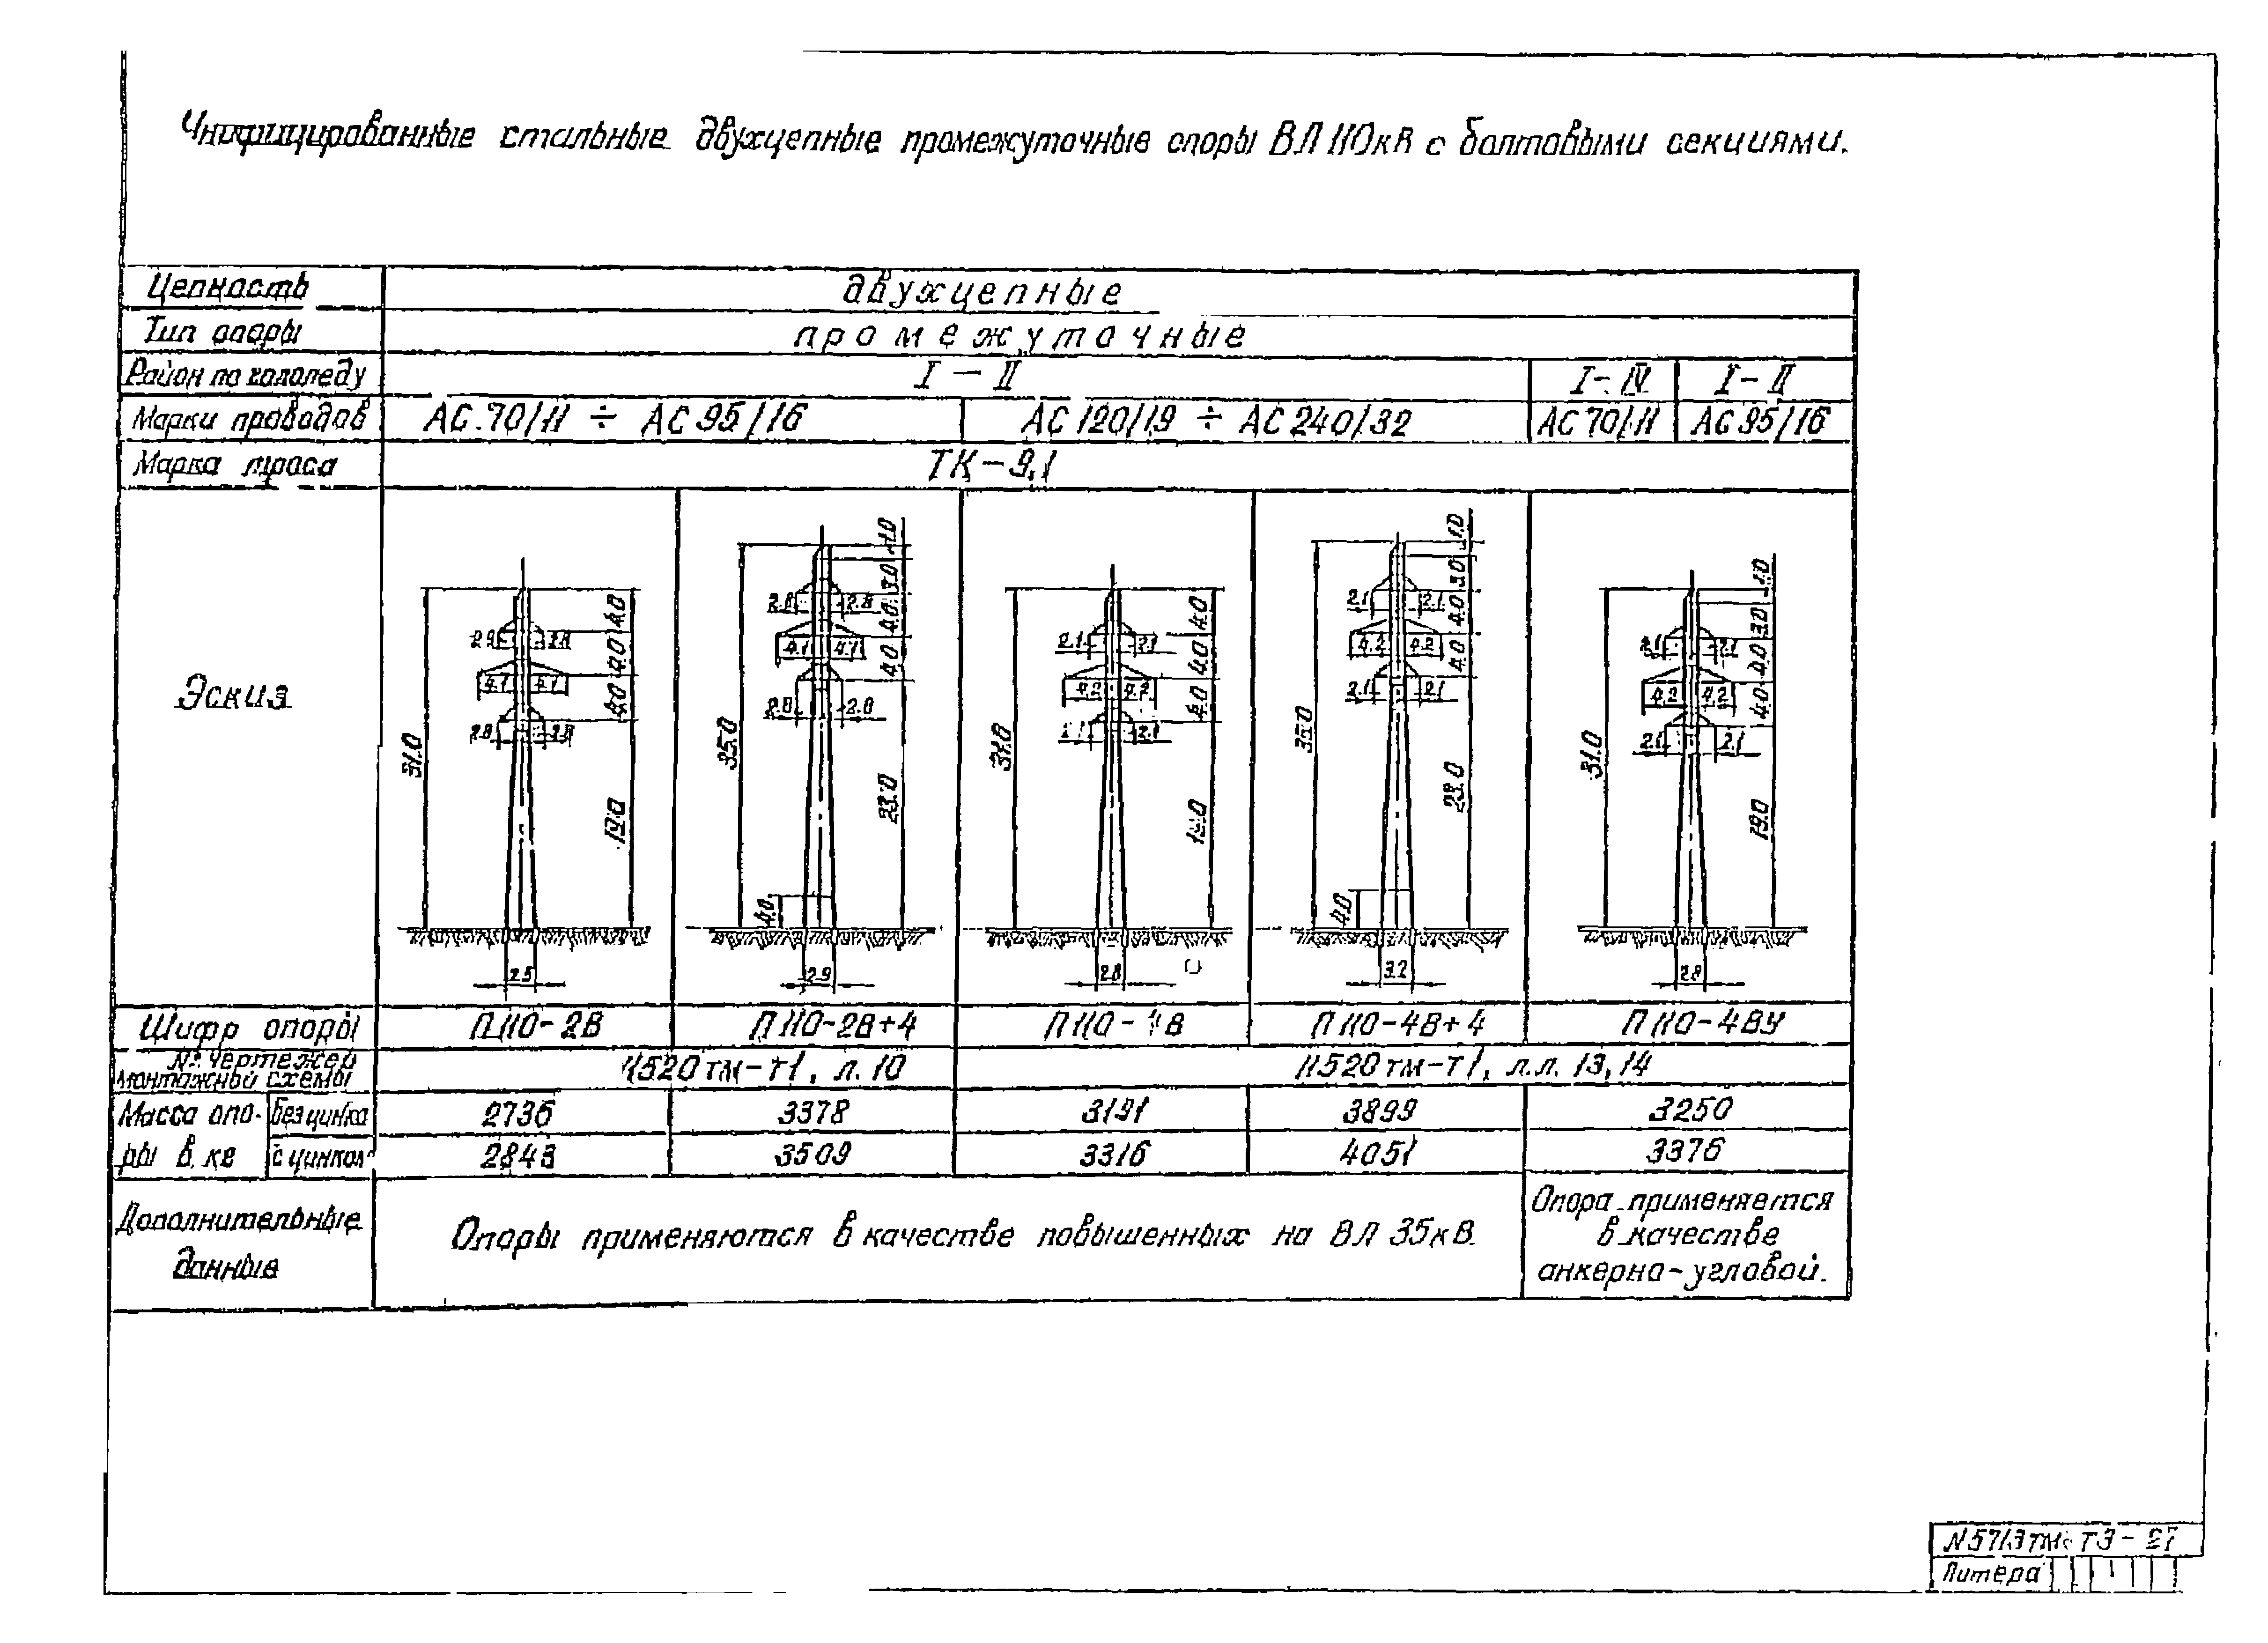 Унифицированные стальные двухцепные промежуточные опоры ВЛ 110кВ с болтовыми секциями.
Цепность двухцепные
Тип опоры промежуточные
Район по гололеду I – II I – IV I – II
Марки проводов АС 70/11 ÷ АС 95/16 АС 120/19 ÷ АС 240/32 АС 70/11 АС 95/16
Марка троса ТК – 9,1
Эскиз
31.0 4.0 4.0 4.0 19.0 2.8 4.1 4.1 2.8 2.8 2.5
35.0 1.0 3.0 4.0 4.0 23.0 2.8 2.8 4.1 4.1 2.8 2.8 4.0 2.9
31.0 4.0 4.0 4.0 19.0 2.1 2.1 4.2 4.2 2.1 2.1 2.8
35.0 1.0 3.0 4.0 4.0 23.0 2.1 2.1 4.2 4.2 2.1 2.1 4.0 3.2
31.0 1.0 3.0 4.0 4.0 19.0 2.1 2.1 4.2 4.2 2.1 2.1 2.8
Шифр опоры П110-2В П110-2В+4 П110-4В П110-4В+4 П110-4ВУ
№ чертежей
монтажной схемы 11520тм-т1, л. 10 11520тм-т1, л.л. 13,14
Масса опо- без цинка 2736 3378 3191 3899 3250
ры в кг с цинком 2843 3509 3316 4051 3376
Дополнительные
данные
Опоры применяются в качестве повышенных на ВЛ 35кВ.
Опора применяется
в качестве
анкерно-угловой.
N5713тм-Т3-27
Литера